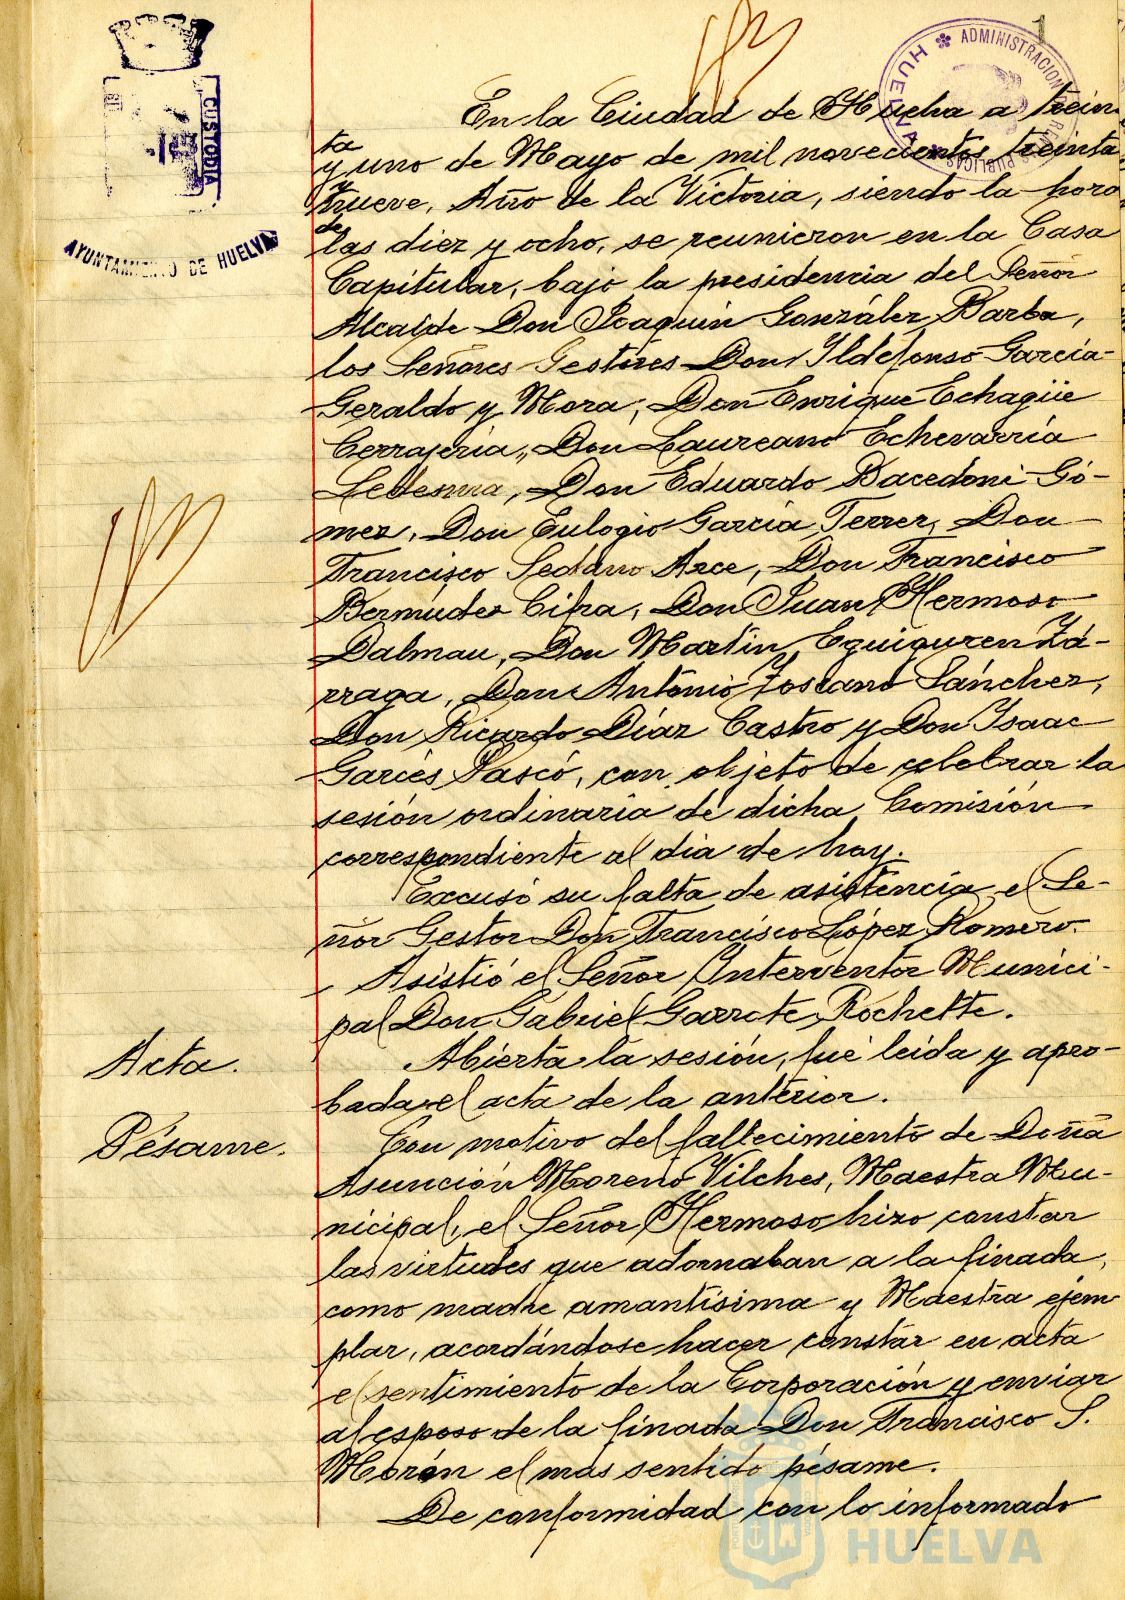 1
ADMINISTRACION DE RENTAS PUBLICAS
HUELVA
CUSTODIA
AYUNTAMIENTO DE HUELVA
En la Ciudad de Huelva a trein
ta
y uno de Mayo de mil novecientos treinta
y
nueve, Año de la Victoria, siendo la hora
de
las diez y ocho, se reunieron en la Casa
Capitular, bajo la presidencia del Señor
Alcalde Don Joaquín González Barba,
los Señores Gestores Don Ildefonso García-
Geraldo y Mora, Don Enrique Echagüe
Cerrajería, Don Laureano Echevarría
Ledesma, Don Eduardo Bacedoni Gó-
mez, Don Eulogio García Ferrer, Don
Francisco Sedano Arce, Don Francisco
Bermúdez Cifra, Don Juan Hermoso
Dalmau, Don Martín Eguiguren Zá-
rraga, Don Antonio Toscano Sánchez,
Don Ricardo Díaz Castro y Don Isaac
Garcés Pascó, con objeto de celebrar la
sesión ordinaria de dicha Comisión
correspondiente al día de hoy.
Excusó su falta de asistencia el Se-
ñor Gestor Don Francisco López Romero.
Asistió el Señor Interventor Munici-
pal Don Gabriel Garrote Rochette.
Acta.
Abierta la sesión, fué leida y apro-
bada el acta de la anterior.
Pésame.
Con motivo del fallecimiento de Doña
Asunción Moreno Vilches, Maestra Mu-
nicipal, el Señor Hermoso hizo constar
las virtudes que adornaban a la finada,
como madre amantísima y Maestra ejem
plar, acordándose hacer constar en acta
el sentimiento de la Corporación y enviar
al esposo de la finada Don Francisco S.
Morón el mas sentido pésame.
De conformidad con lo informado
HUELVA